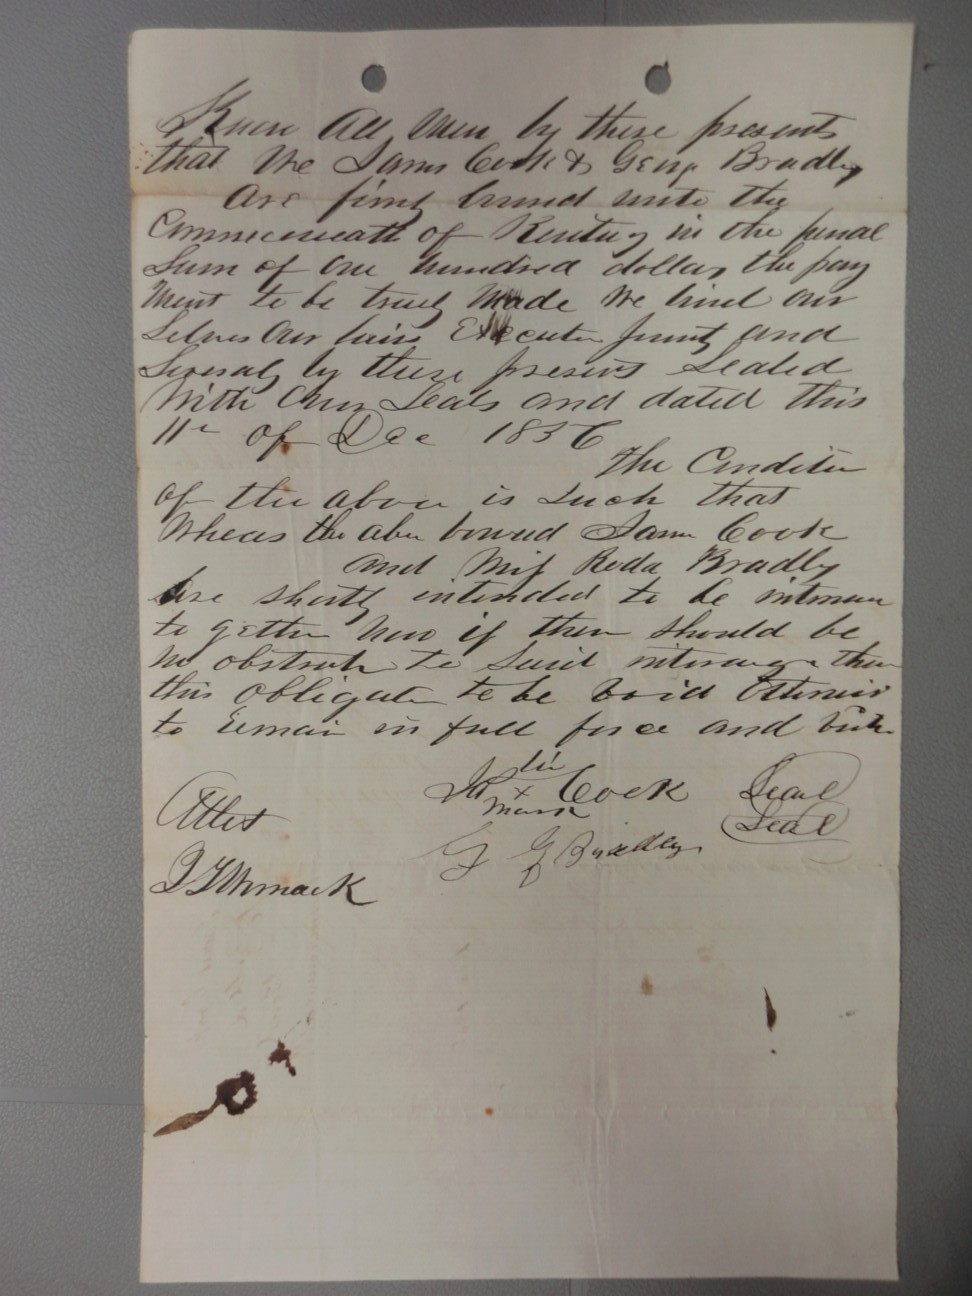 Know All Men by these presents
that We James Cook & Georg Bradley
Are firmly bound unto the
Commonwealth of Kentucy in the penal
Sum of One hundred dollars the pay
ment to be truly Made We bind our
Selves Our heirs Executor Jointly and
Severaly by these presents Sealed
With Our Seals and dated this
11th of Dec 1856
The Condition
of the above is Such that
Wheas the abov bound James Cook
and Miss Roda Bradley
are shortly intended to be
to gether Now if there should be
No obstruction to Said then
this obligation to be void Otherwise
to remain in full force and
his
Ja x Cook Seal
mark
Seal
Attest
G G Bradley
J T Womack